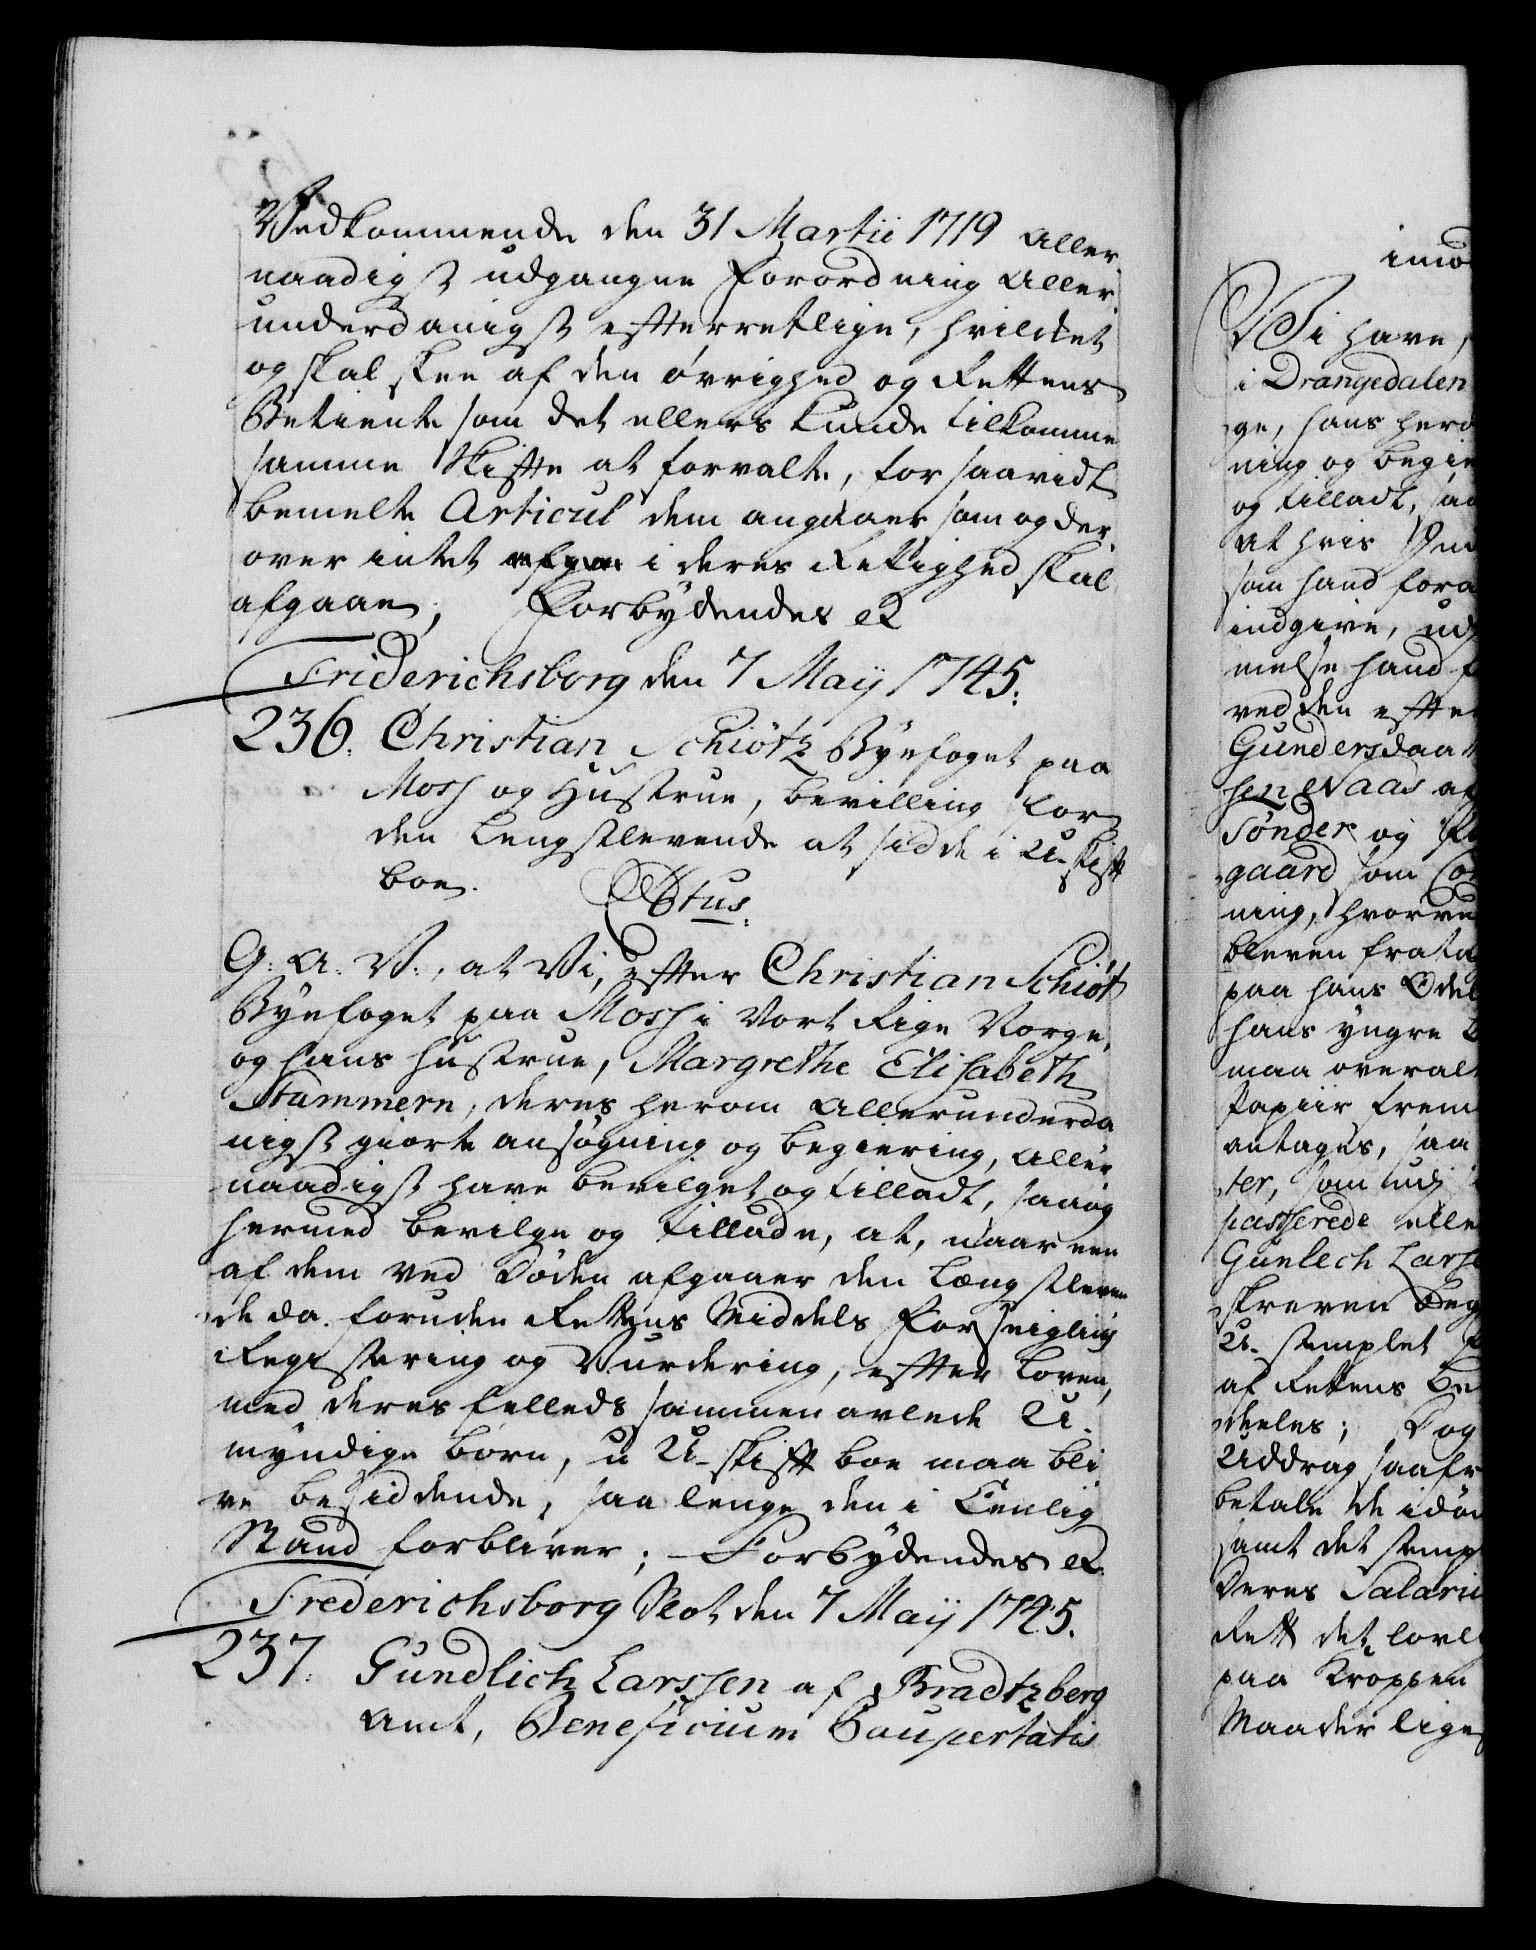 Vedkommende den 31 Martii 1719 aller
naadigst udgangne Forordning aller
underdanigst efterretlige, hvilcket
og skal skee af den øvrighed og Rettens
Betiente som det ellers kunde tilkomme
samme Skifte at forvalte, for saavidt
bemelte Articul dem angaaer som og der
over intet i deres Rettighed skal
afgaae, Forbydendes &c
Friderichsborg den 7 Maij 1745.
236. Christian Schiøtz Byefoget paa
Moss og Hustrue, bevilling for
den lengstlevende at sidde i U-skift
boe.
G: A: V:, at Vi, efter Christian Schiøt
Byefoget paa Moss i Vort Rige Norge,
og hans hustrue, Margrethe Elisabeth
Stammern, deres herom allerunderda
nigst giorte ansøgning og begiering, aller
naadigst have bevilget og tilladt, saa og
hermed bevilge og tillade, at, naar een
af dem ved Døden afgaaer den længstleven
de da foruden Rettens Middels Forseigling
Registering og Vurdering, efter Loven,
med deres felleds sammen avlede U-
myndige børn, u U-skift boe maa bli
ve besiddende, saa lenge den i Eenlig
Stand forbliver; Forbydendes &c.
Frederichsborg Slot den 7 Maij 1745.
237. Gundlich Larssen af Bradtzberg
Amt, Beneficium Paupertatis
Vi have,
i Drangedalen
ge, hans her
ning og begie
og tilladt, saa
at hvis
som hand for
indgive, ud
melse hand
ved den efter
Gundersdaat
sen Naas af
Sønder og
gaard som
ning, hvor
bleven frata
paa hans Odel
hans yngre
maa overalt
Papiir frem
antages, saa
ter, som udj
passerede elle
Gunlech Larse
skreven Beg
U-stemplet
af Rettens Be
deeles; Dog
Uddrag saafr
betale de idøm
samt det stemp
Deres Salariu
Rett det lovl
paa Kroppen
Maader lige